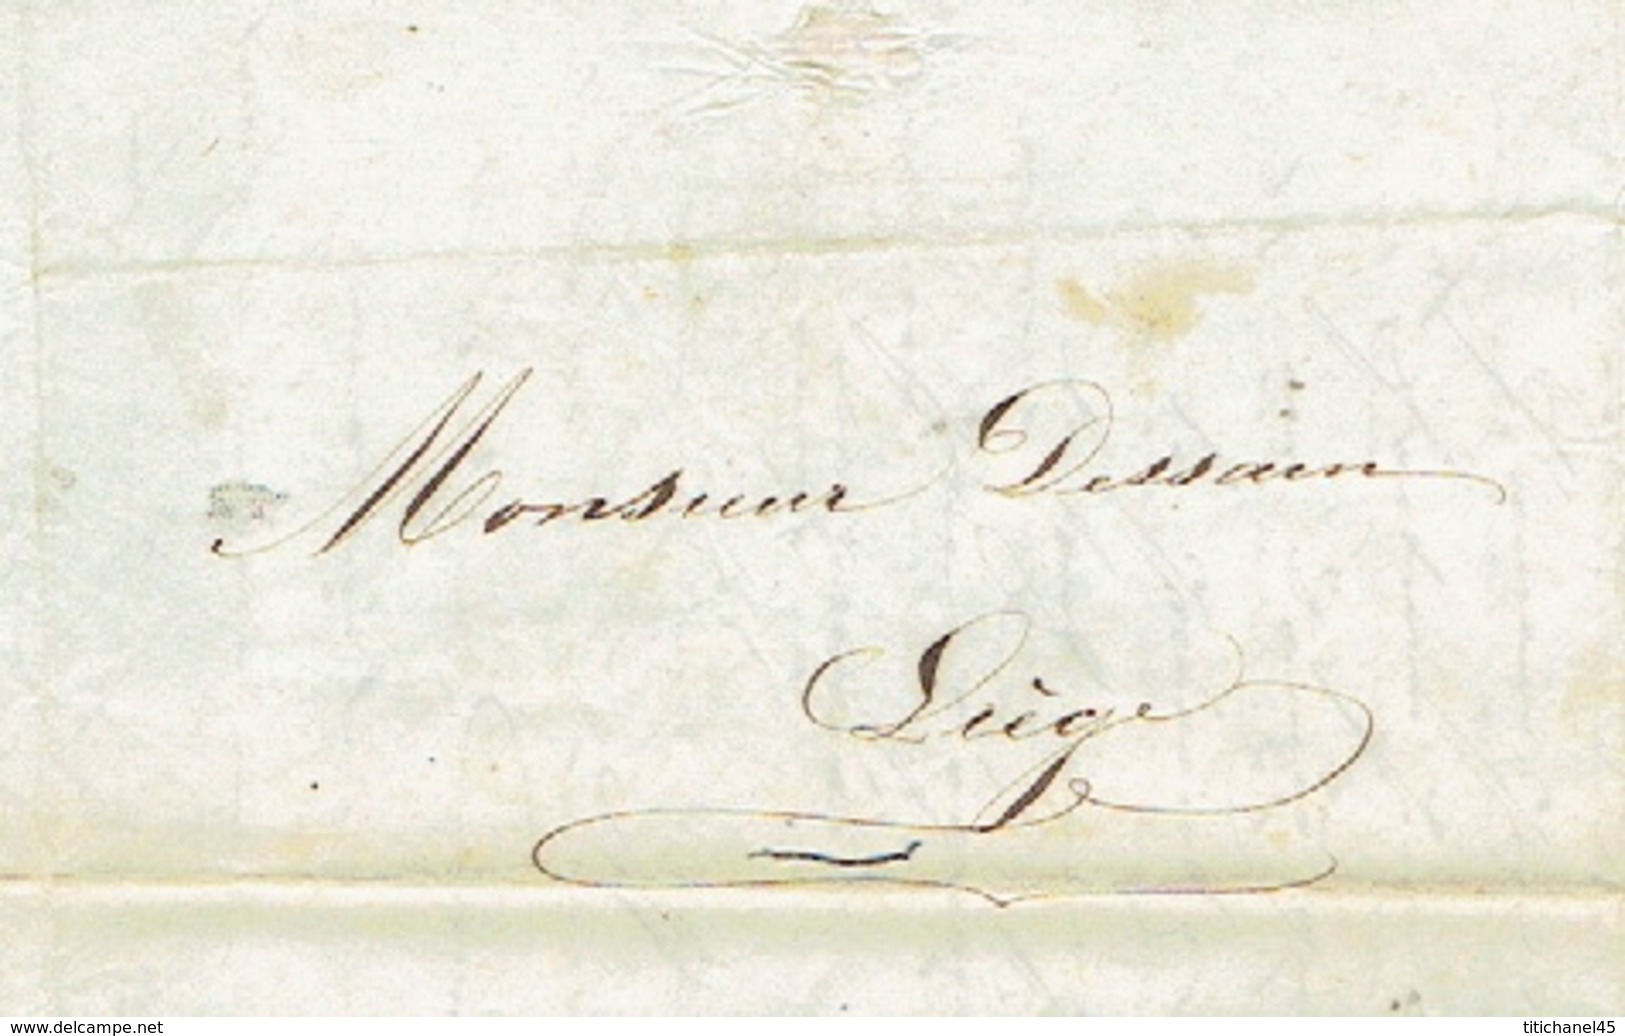 Monsieur Dessain
Liège
www.delcampe.net
titichanel45